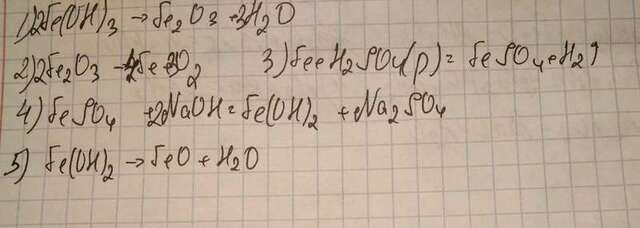 1) 2Fe(OH)3 → Fe2O3 + 3H2O
2) 2Fe2O3 → 4Fe + 3O2 3) Fe + H2SO4(р) = FeSO4 + H2↑
4) FeSO4 + 2NaOH = Fe(OH)2 + Na2SO4
5) Fe(OH)2 → FeO + H2O